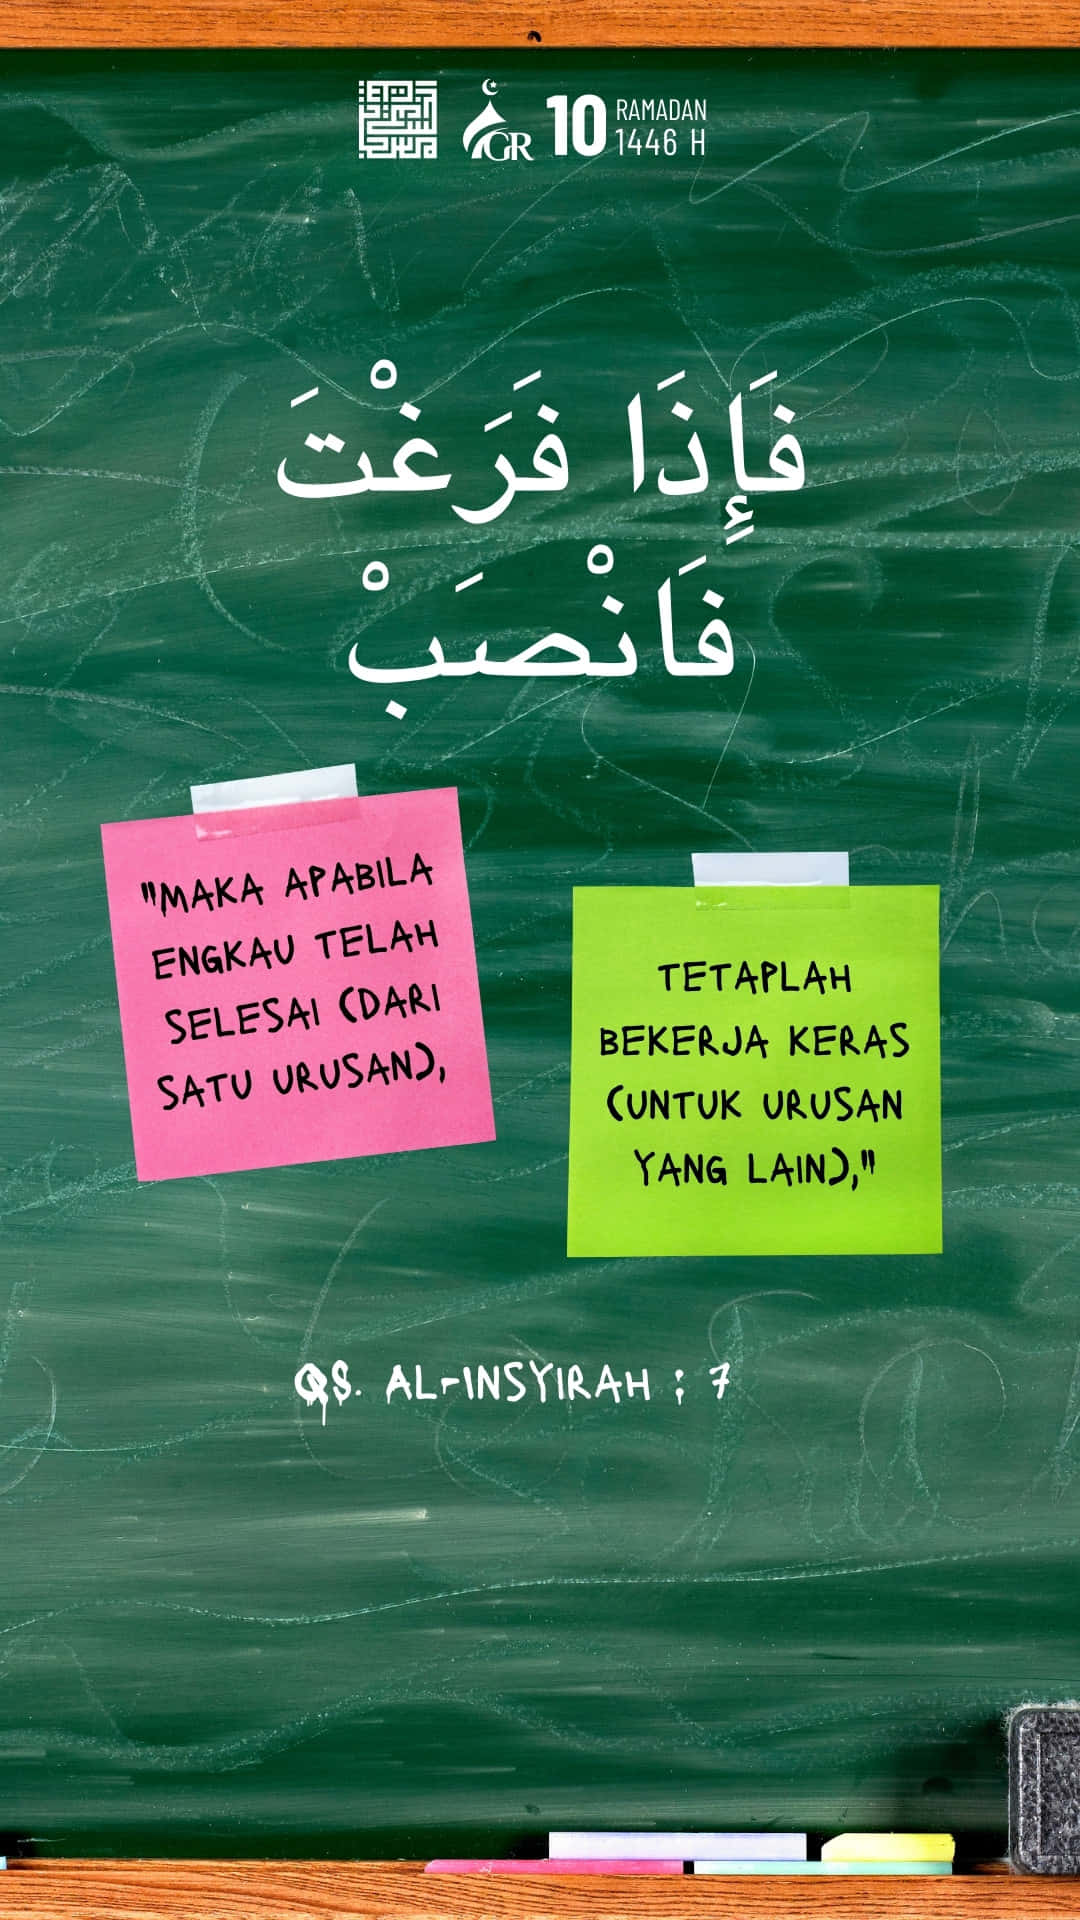 GR
10
RAMADAN
1446 H
فَإِذَا فَرَغْتَ
فَانْصَبْ
"MAKA APABILA
ENGKAU TELAH
SELESAI (DARI
SATU URUSAN),
TETAPLAH
BEKERJA KERAS
(UNTUK URUSAN
YANG LAIN),"
QS. AL-INSYIRAH : 7